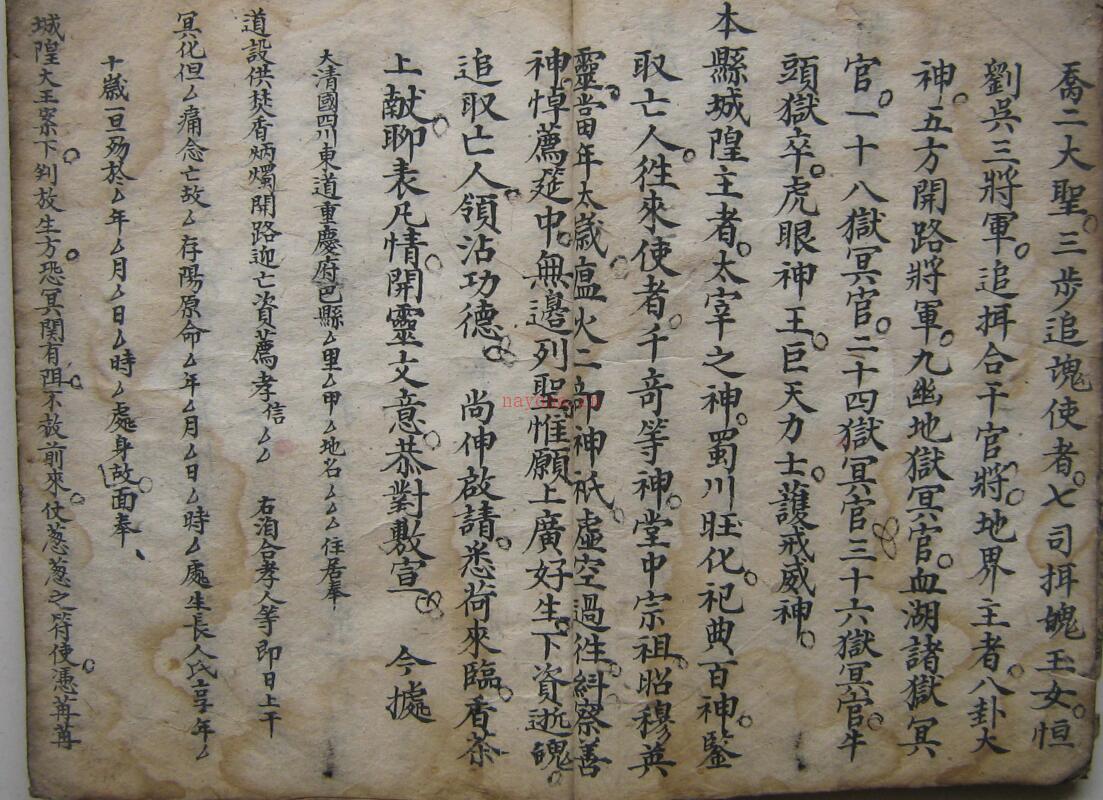 喬二大聖。三步追魂使者。七司拘魄玉女。恒
劉吳三將軍。追拘合干官將。地界主者。八卦大
神。五方開路將軍。九幽地獄冥官。血湖諸獄冥
官。一十八獄冥官。二十四獄冥官三十六獄冥官。牛
頭獄卒。虎眼神王。巨天力士。護戒威神。
本縣城隍主者。太宰之神。蜀川旺化。祀典百神。鑒
取亡人。徃來使者。千竒等神。堂中宗祖。昭穆英
靈。當年太歲。瘟火二部神祇。虛空過徃。糾察善
神。悼薦筵中。無邊列聖。惟願上廣好生。下資逝魄。
追取亡人。領沾功德。 尚伸啟請。悉荷來臨。香茶
上献。聊表凡情。開靈文意。恭對敷宣。 今據
大清國四川東道重慶府巴縣厶里厶甲厶地名厶厶厶住居奉
道設供焚香炳燭開路迎亡資薦孝信厶厶 右洎合孝人等即日上干
冥化但厶痛念亡故厶存陽原命厶年厶月厶日厶時厶處生長人氏享年厶
十歲一旦殁於厶年厶月厶日厶時厶處身故。面奉、
城隍大王案下。判放生方。恐冥関有阻。不放前來。仗葱葱之符使。憑苒苒
nayona.cn